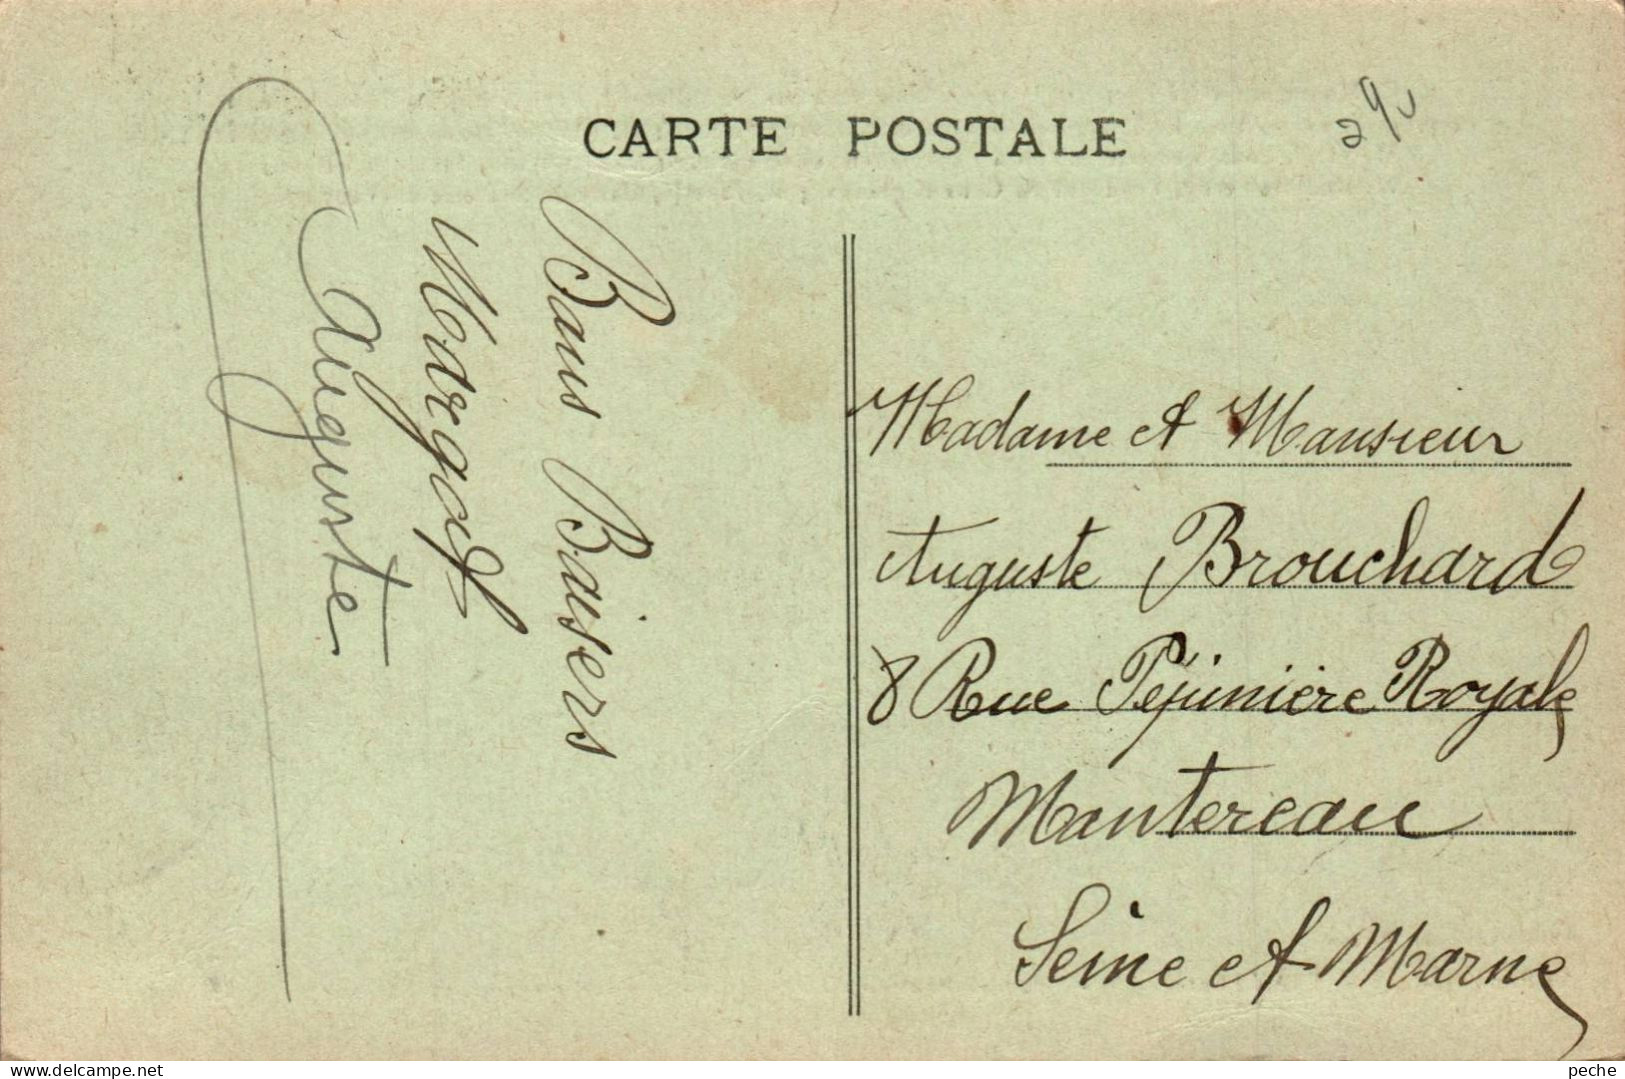 CARTE POSTALE
Bons Baisers
Margot
Auguste
Madame et Monsieur
Auguste Brouchard
8 Rue Pépinière Royale
Montereau
Seine et Marne
peche